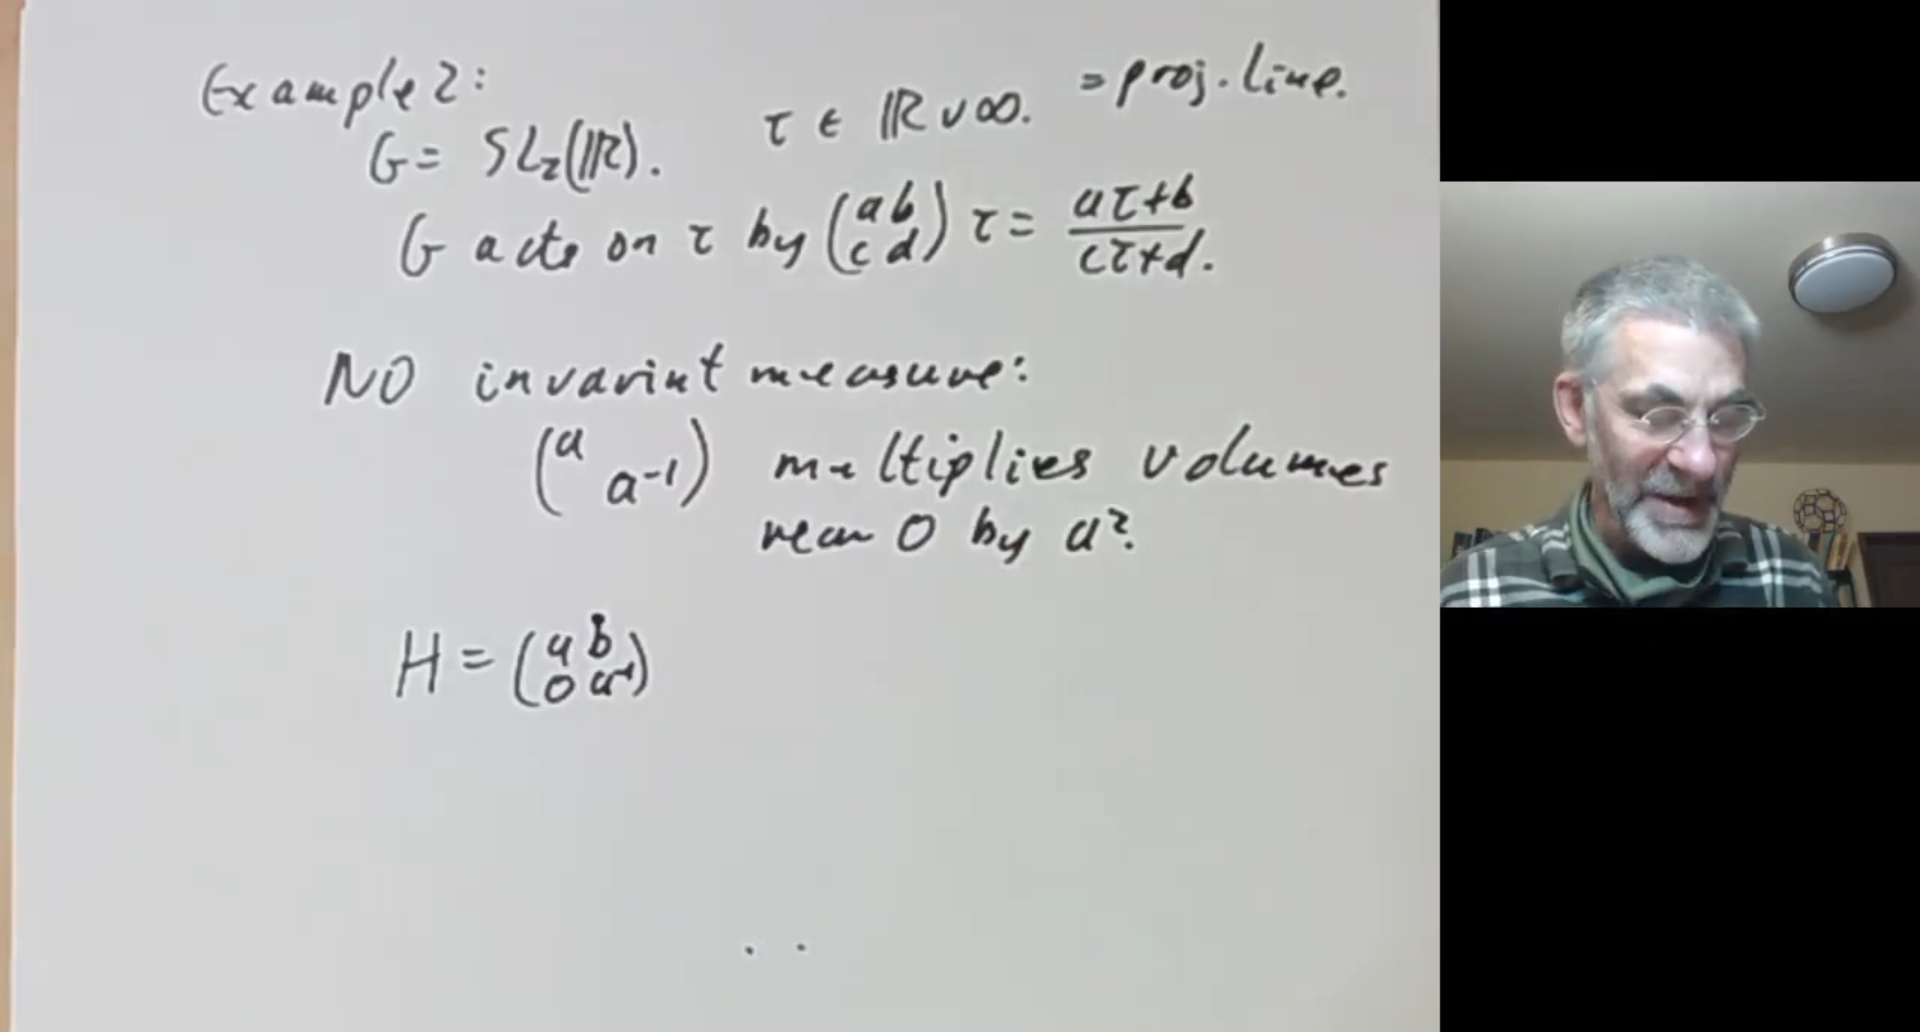 Example 2:
G = SL₂(ℝ). τ ∈ ℝ ∪ ∞. = proj. line.
G acts on τ by (a b / c d) τ = aτ+b / cτ+d.
NO invarint measure:
(a / a⁻¹) multiplies volumes
near 0 by a².
H = (a b / 0 a⁻¹)